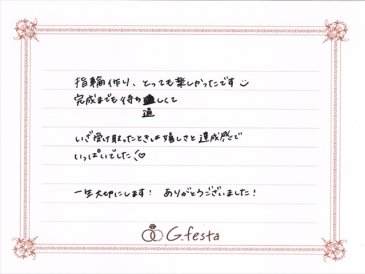 指輪作り、とっても楽しかったです
完成までも待ち遠しくて
いざ受け取ったときは嬉しさと達成感で
いっぱいでした!
一生大切にします! ありがとうございました!
G.festa